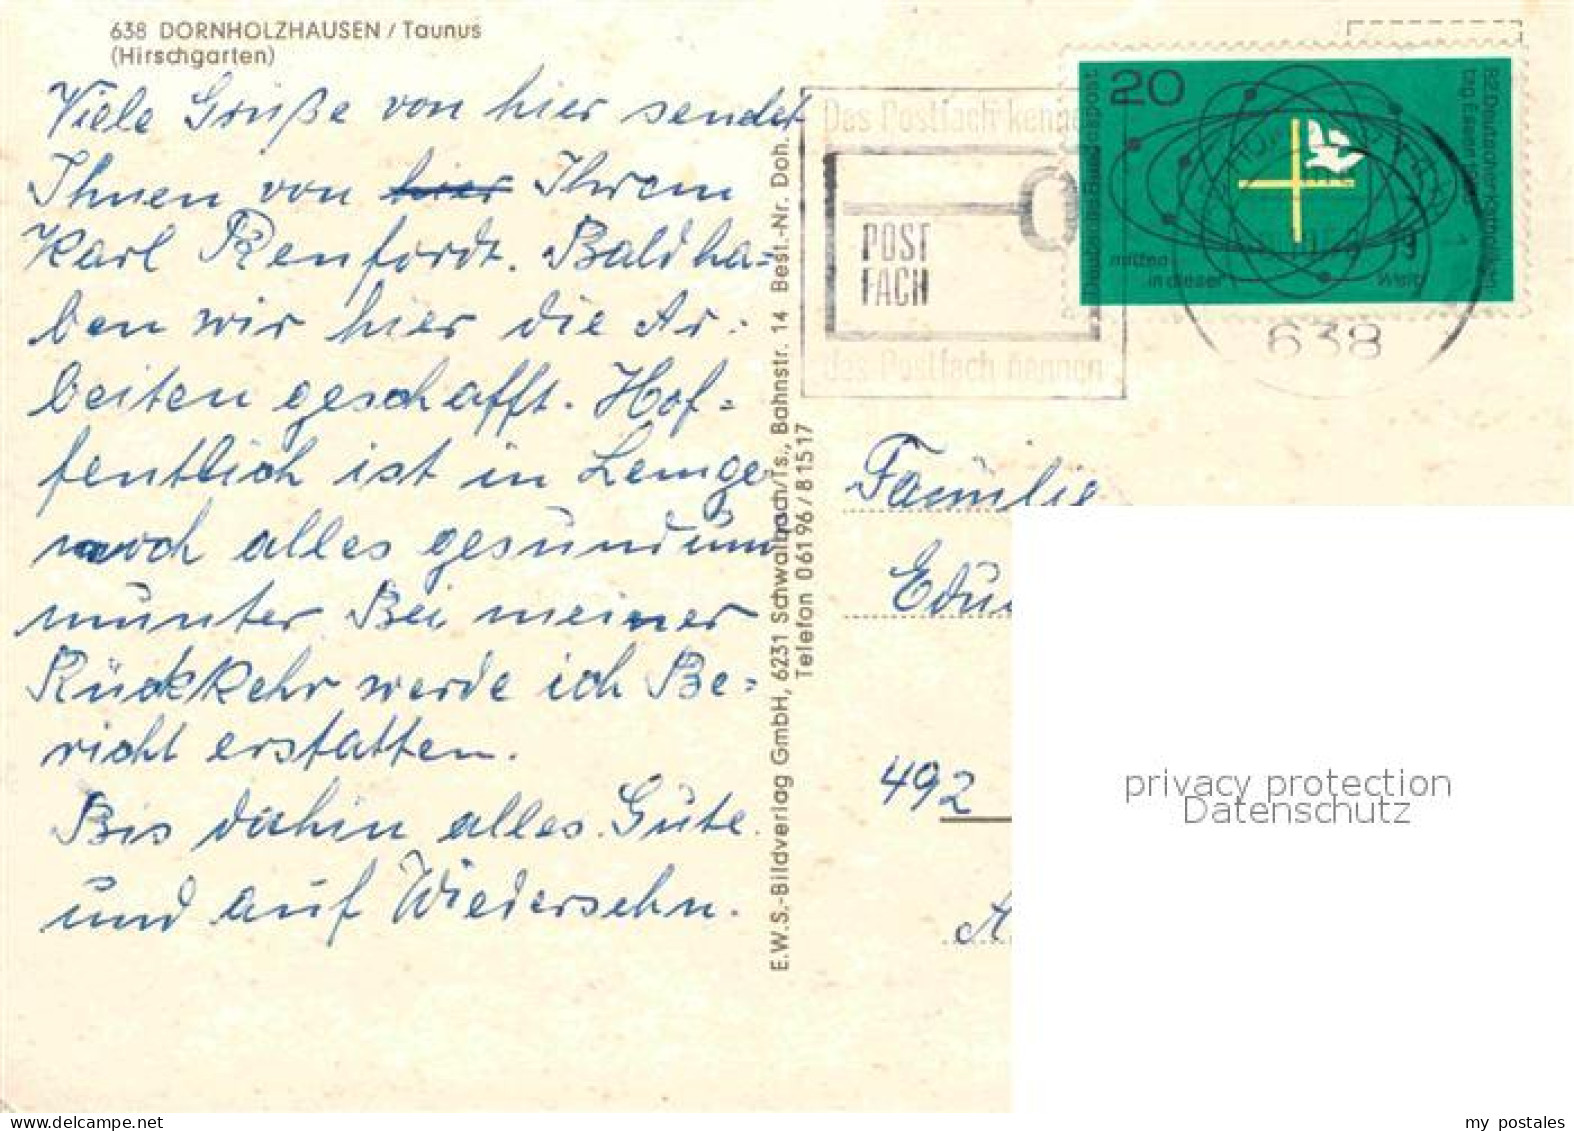 638 DORNHOLZHAUSEN / Taunus
(Hirschgarten)
Viele Grüße von hier sendet
Ihnen von hier Ihrem
Karl Renfordt. Bald ha=
ben wir hier die Ar-
beiten geschafft. Hof=
fentlich ist in Lemgo
noch alles gesund und
munter Bei meiner
Rückkehr werde ich Be=
richt erstatten.
Bis dahin alles Gute
und auf Wiedersehn.
E.W.S.-Bildverlag GmbH, 6231 Schwalbach/Ts., Bahnstr. 14 Best.-Nr. Doh.
Telefon 06196/81517
Das Postfach kennen
POST
FACH
des Postfach nennen
20
Deutsche Bundespost
82. Deutscher Katholiken
tag Essen 1968
mitten
in dieser Welt
638
Familie
Edu
492
A
privacy protection
Datenschutz
my postales